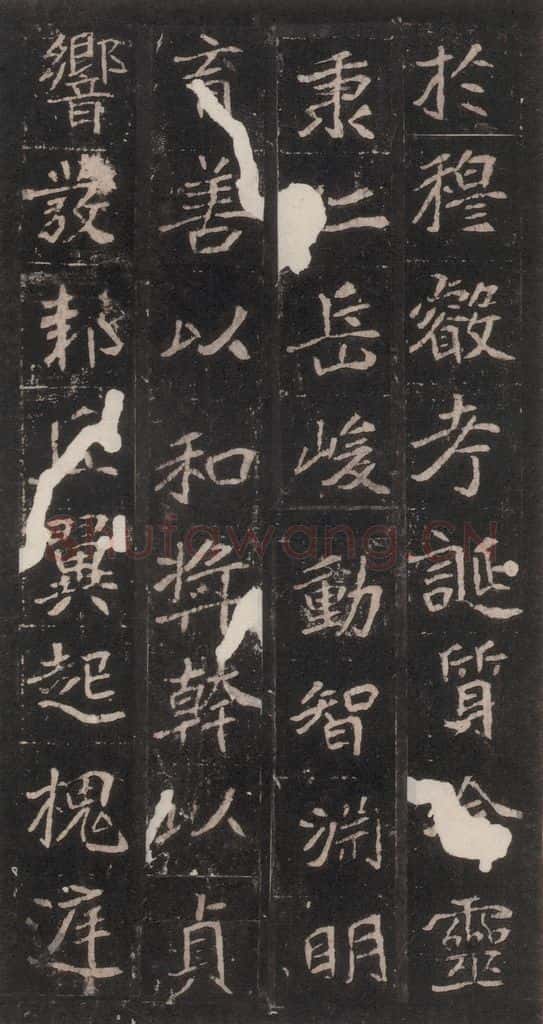 於穆叡考誕質靈
秉仁岳峻動智淵明
育善以和將幹以貞
響發邦丘翼起槐庭
Shufawang.CN